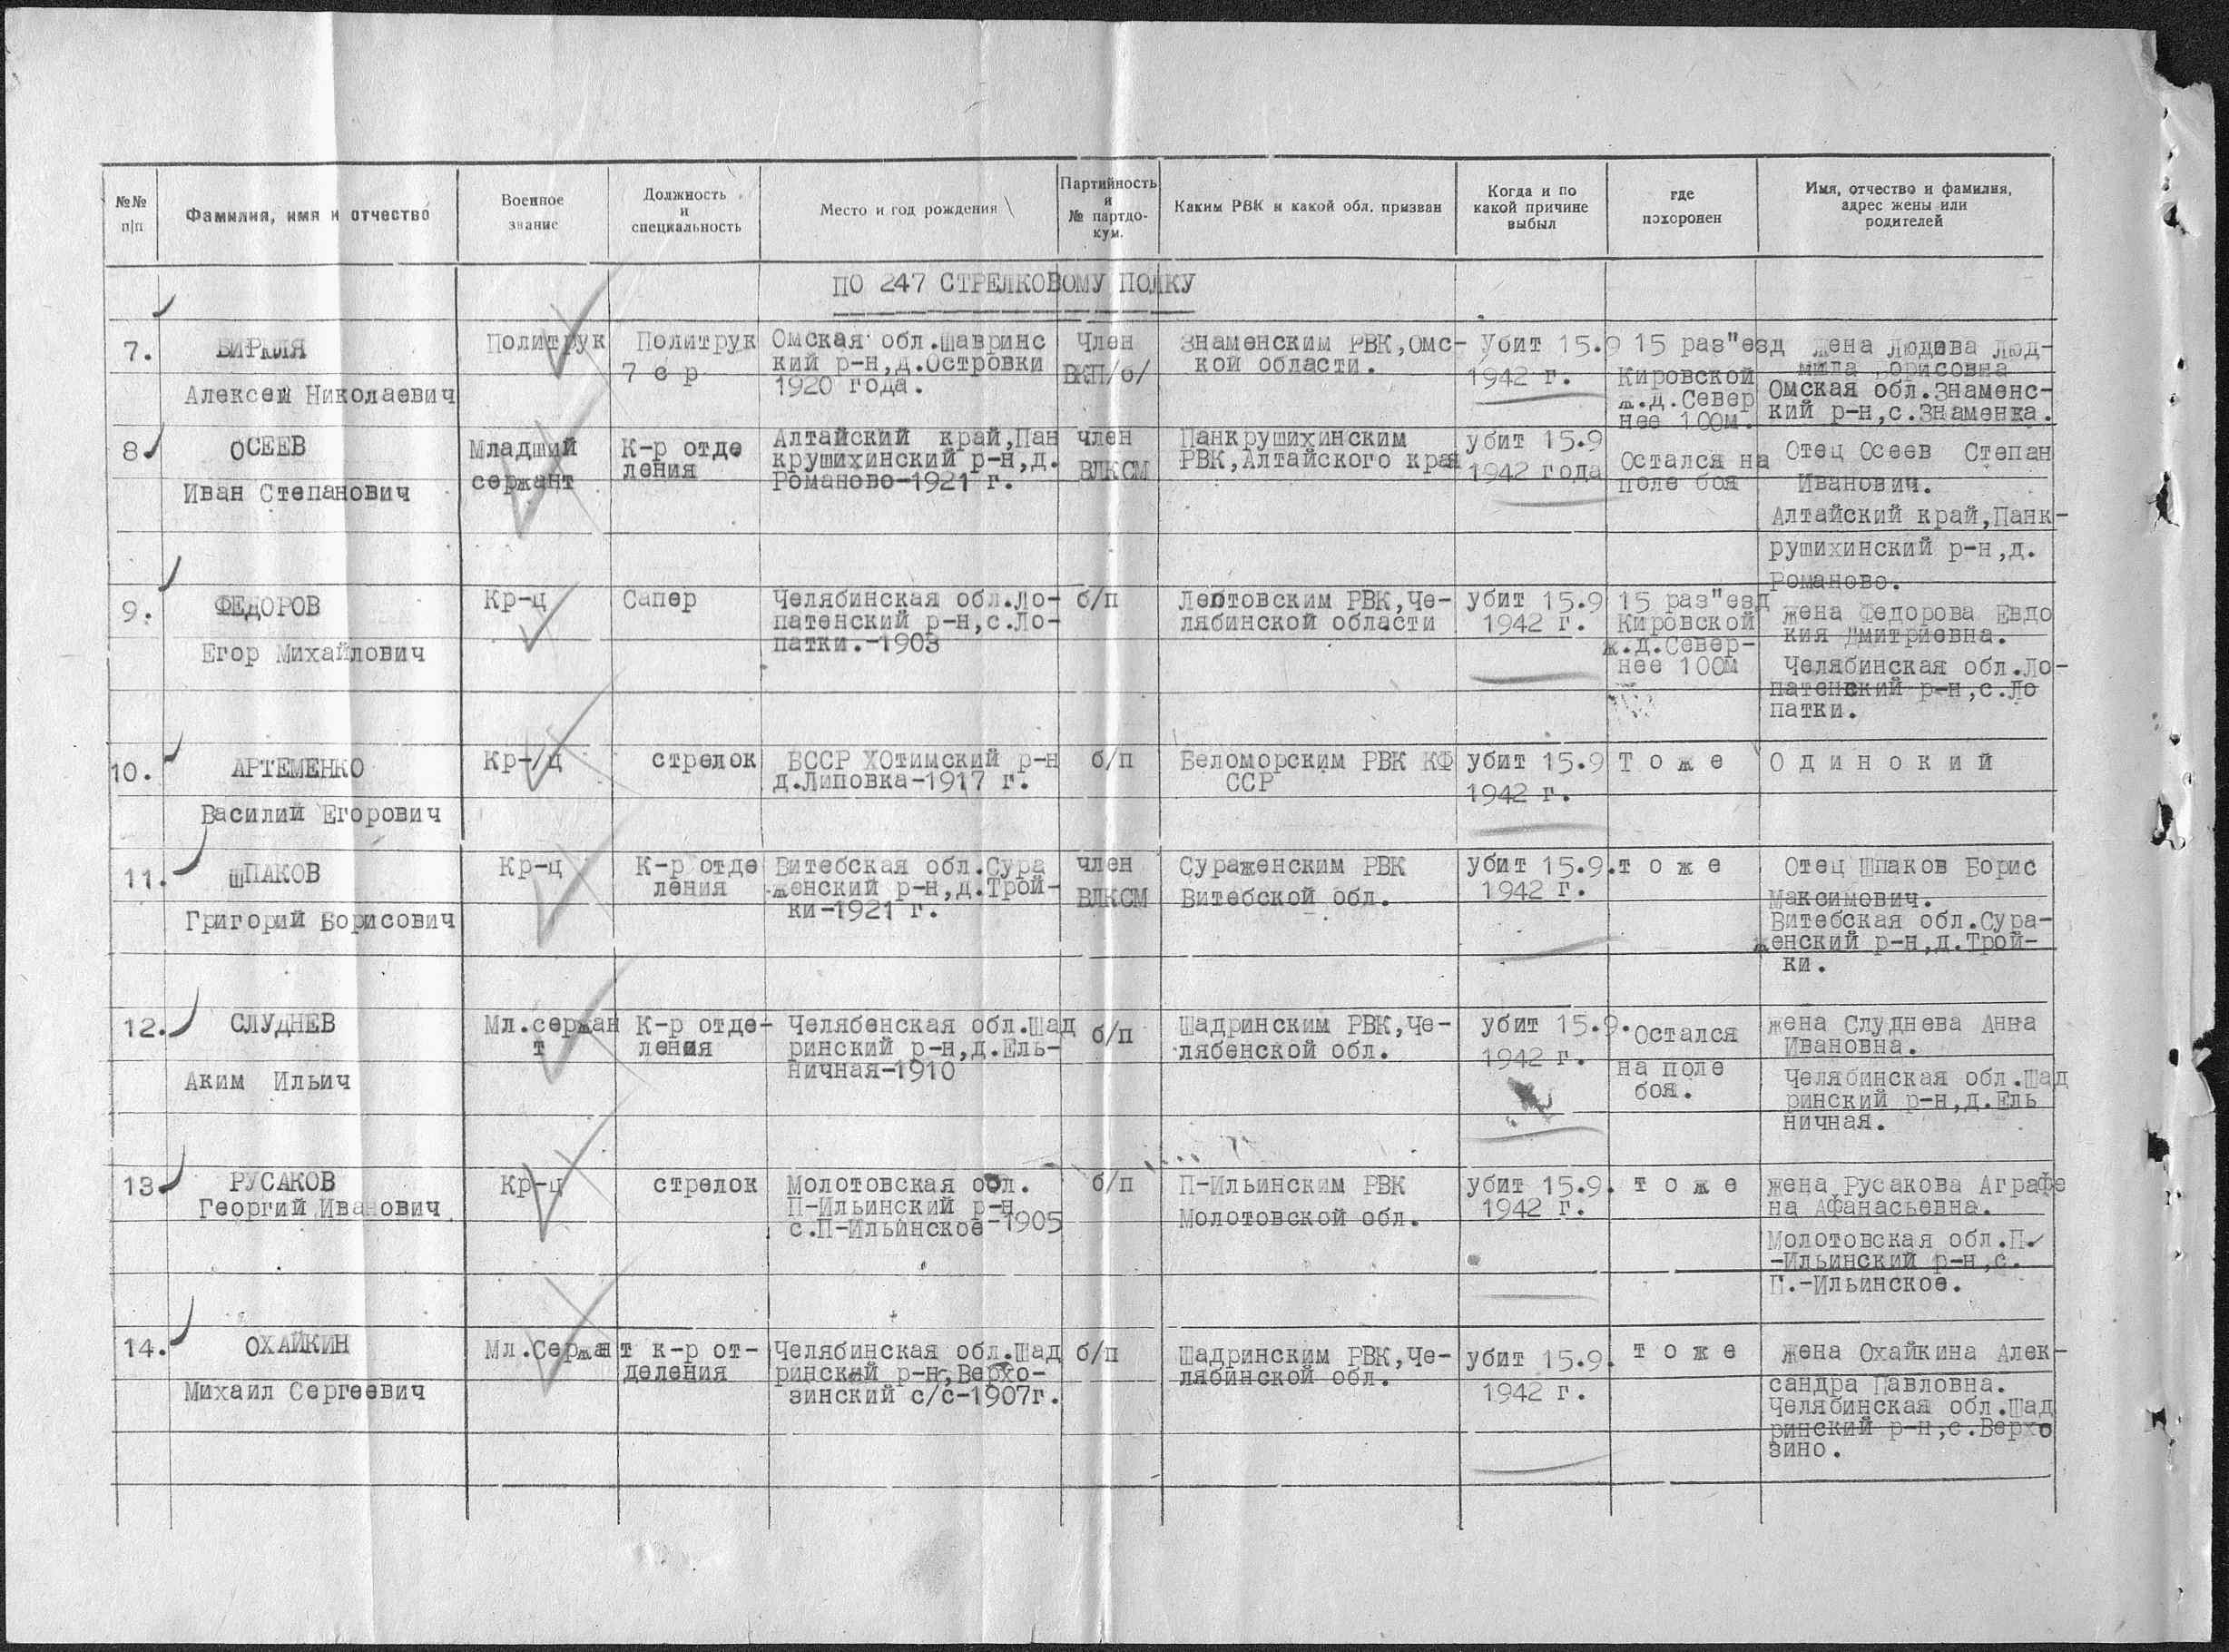 №№ п/п
Фамилия, имя и отчество
Военное звание
Должность и специальность
Место и год рождения
Партийность и № партдо-кум.
Каким РВК и какой обл. призван
Когда и по какой причине выбыл
где похоронен
Имя, отчество и фамилия, адрес жены или родителей
ПО 247 СТРЕЛКОВОМУ ПОЛКУ
7.
БИРКЛЯ
Алексей Николаевич
Политрук
Политрук
7 с р
Омская обл.Шавринс
кий р-н,д.Островки
1920 года.
Член
ВКП/б/
Знаменским РВК,Омс-
кой области.
Убит 15.9
1942 г.
15 раз"езд
Кировской
ж.д.Север
нее 100м.
жена Людева Люд-
мила Борисовна
Омская обл.Знаменс-
кий р-н,с.Знаменка.
8
ОСЕЕВ
Иван Степанович
Младший
сержант
К-р отде
ления
Алтайский край,Пан
крушихинский р-н,д.
Романово-1921 г.
член
ВЛКСМ
Панкрушихинским
РВК,Алтайского края
убит 15.9
1942 года
Остался на
поле боя
Отец Осеев Степан
Иванович.
Алтайский край,Панк-
рушихинский р-н,д.
Романово.
9.
ФЕДОРОВ
Егор Михайлович
Кр-ц
Сапер
Челябинская обл.Ло-
патенский р-н,с.Ло-
патки.-1903
б/п
Лебтовским РВК,Че-
лябинской области
убит 15.9
1942 г.
15 раз"езд
Кировской
ж.д.Север-
нее 100м
жена Федорова Евдо
кия Дмитриевна.
Челябинская обл.Ло-
патенский р-н,с.Ло
патки.
10.
АРТЕМЕНКО
Василий Егорович
Кр-/ц
стрелок
БССР ХОтимский р-н
д.Липовка-1917 г.
б/п
Беломорским РВК КФ
ССР
убит 15.9
1942 г.
Т о ж е
О д и н о к и й
11.
ШПАКОВ
Григорий Борисович
Кр-ц
К-р отде
ления
Витебская обл.Сура
женский р-н,д.Трой-
ки-1921 г.
член
ВЛКСМ
Сураженским РВК
Витебской обл.
убит 15.9.
1942 г.
т о ж е
Отец Шпаков Борис
Максимович.
Витебская обл.Сура-
женский р-н,д.Трой-
ки.
12.
СЛУДНЕВ
Аким Ильич
Мл.сержан
т
К-р отде-
ления
Челябенская обл.Шад
ринский р-н,д.Ель-
ничная-1910
б/п
Шадринским РВК,Че-
лябенской обл.
убит 15.9.
1942 г.
Остался
на поле
боя.
жена Слуднева Анна
Ивановна.
Челябинская обл.Шад
ринский р-н,д.Ель
ничная.
13
РУСАКОВ
Георгий Иванович
Кр-ц
стрелок
Молотовская обл.
П-Ильинский р-н
с.П-Ильинское-1905
б/п
П-Ильинским РВК
Молотовской обл.
убит 15.9.
1942 г.
т о ж е
жена Русакова Аграфе
на Афанасьевна.
Молотовская обл.П.
-Ильинский р-н,с.
П.-Ильинское.
14.
ОХАЙКИН
Михаил Сергеевич
Мл.Сержант
к-р от-
деления
Челябинская обл.Шад
ринский р-н,Верхо-
зинский с/с-1907г.
б/п
Шадринским РВК,Че-
лябинской обл.
убит 15.9.
1942 г.
т о ж е
жена Охайкина Алек-
сандра Павловна.
Челябинская обл.Шад
ринский р-н,с.Верхо
зино.